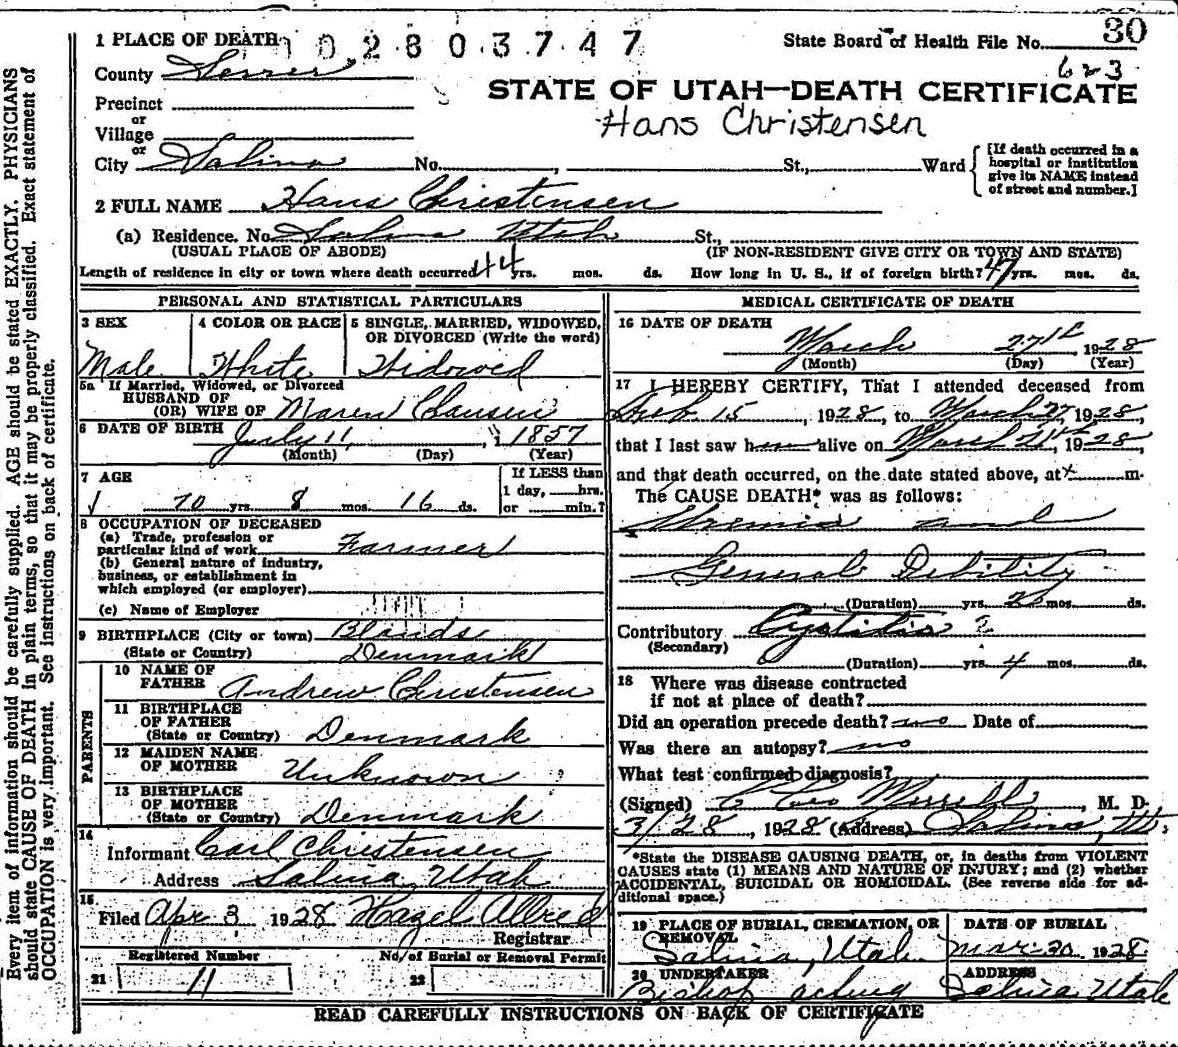 1 PLACE OF DEATH
1 0 2 8 0 3 7 4 7
State Board of Health File No. 30
County Sevier
623
STATE OF UTAH—DEATH CERTIFICATE
Precinct
or
Hans Christensen
Village
or
City Salina No. , St., Ward
[If death occurred in a
hospital or institution
give its NAME instead
of street and number.]
2 FULL NAME Hans Christensen
(a) Residence. No. Salina Utah St.,
(USUAL PLACE OF ABODE) (IF NON-RESIDENT GIVE CITY OR TOWN AND STATE)
Length of residence in city or town where death occurred 44 yrs. mos. ds. How long in U. S., if of foreign birth? 47 yrs. mos. ds.
PERSONAL AND STATISTICAL PARTICULARS
3 SEX
Male
4 COLOR OR RACE
White
5 SINGLE, MARRIED, WIDOWED,
OR DIVORCED (Write the word)
Widowed
5a If Married, Widowed, or Divorced
HUSBAND OF
(OR) WIFE OF Maren Clausen
6 DATE OF BIRTH July 11, 1857
(Month) (Day) (Year)
7 AGE
70 yrs. 8 mos. 16 ds.
If LESS than
1 day, hrs.
or min.?
8 OCCUPATION OF DECEASED
(a) Trade, profession or
particular kind of work Farmer
(b) General nature of industry,
business, or establishment in
which employed (or employer)
(c) Name of Employer
9 BIRTHPLACE (City or town) Blands
(State or Country) Denmark
PARENTS
10 NAME OF
FATHER Andrew Christensen
11 BIRTHPLACE
OF FATHER
(State or Country) Denmark
12 MAIDEN NAME
OF MOTHER Unknown ?
13 BIRTHPLACE
OF MOTHER
(State or Country) Denmark
14
Informant Carl Christensen
Address Salina, Utah
15
Filed Apr 3 1928 Hazel Allred
Registrar
Registered Number
No. of Burial or Removal Permit
21 11
22
MEDICAL CERTIFICATE OF DEATH
16 DATE OF DEATH
March 27th 1928
(Month) (Day) (Year)
17 I HEREBY CERTIFY, That I attended deceased from
15, 1928, to March 27, 1928
that I last saw him alive on March 1928
and that death occurred, on the date stated above, at m.
The CAUSE DEATH* was as follows:
Uremia and
General Debility
(Duration) yrs. 2 mos. ds.
Contributory Cystitis ?
(Secondary)
(Duration) yrs. 4 mos. ds.
18 Where was disease contracted
if not at place of death?
Did an operation precede death? no Date of
Was there an autopsy? no
What test confirmed diagnosis?
(Signed) M. D.
3/28, 1928 (Address) Salina, Ut.
*State the DISEASE CAUSING DEATH, or, in deaths from VIOLENT
CAUSES state (1) MEANS AND NATURE OF INJURY; and (2) whether
ACCIDENTAL, SUICIDAL OR HOMICIDAL. (See reverse side for ad-
ditional space.)
19 PLACE OF BURIAL, CREMATION, OR
REMOVAL
Salina, Utah
DATE OF BURIAL
Mar 30 1928
20 UNDERTAKER
Bishop acting
ADDRESS
Salina Utah
READ CAREFULLY INSTRUCTIONS ON BACK OF CERTIFICATE
Every item of information should be carefully supplied. AGE should be stated EXACTLY. PHYSICIANS
should state CAUSE OF DEATH in plain terms, so that it may be properly classified. Exact statement of
OCCUPATION is very important. See instructions on back of certificate.